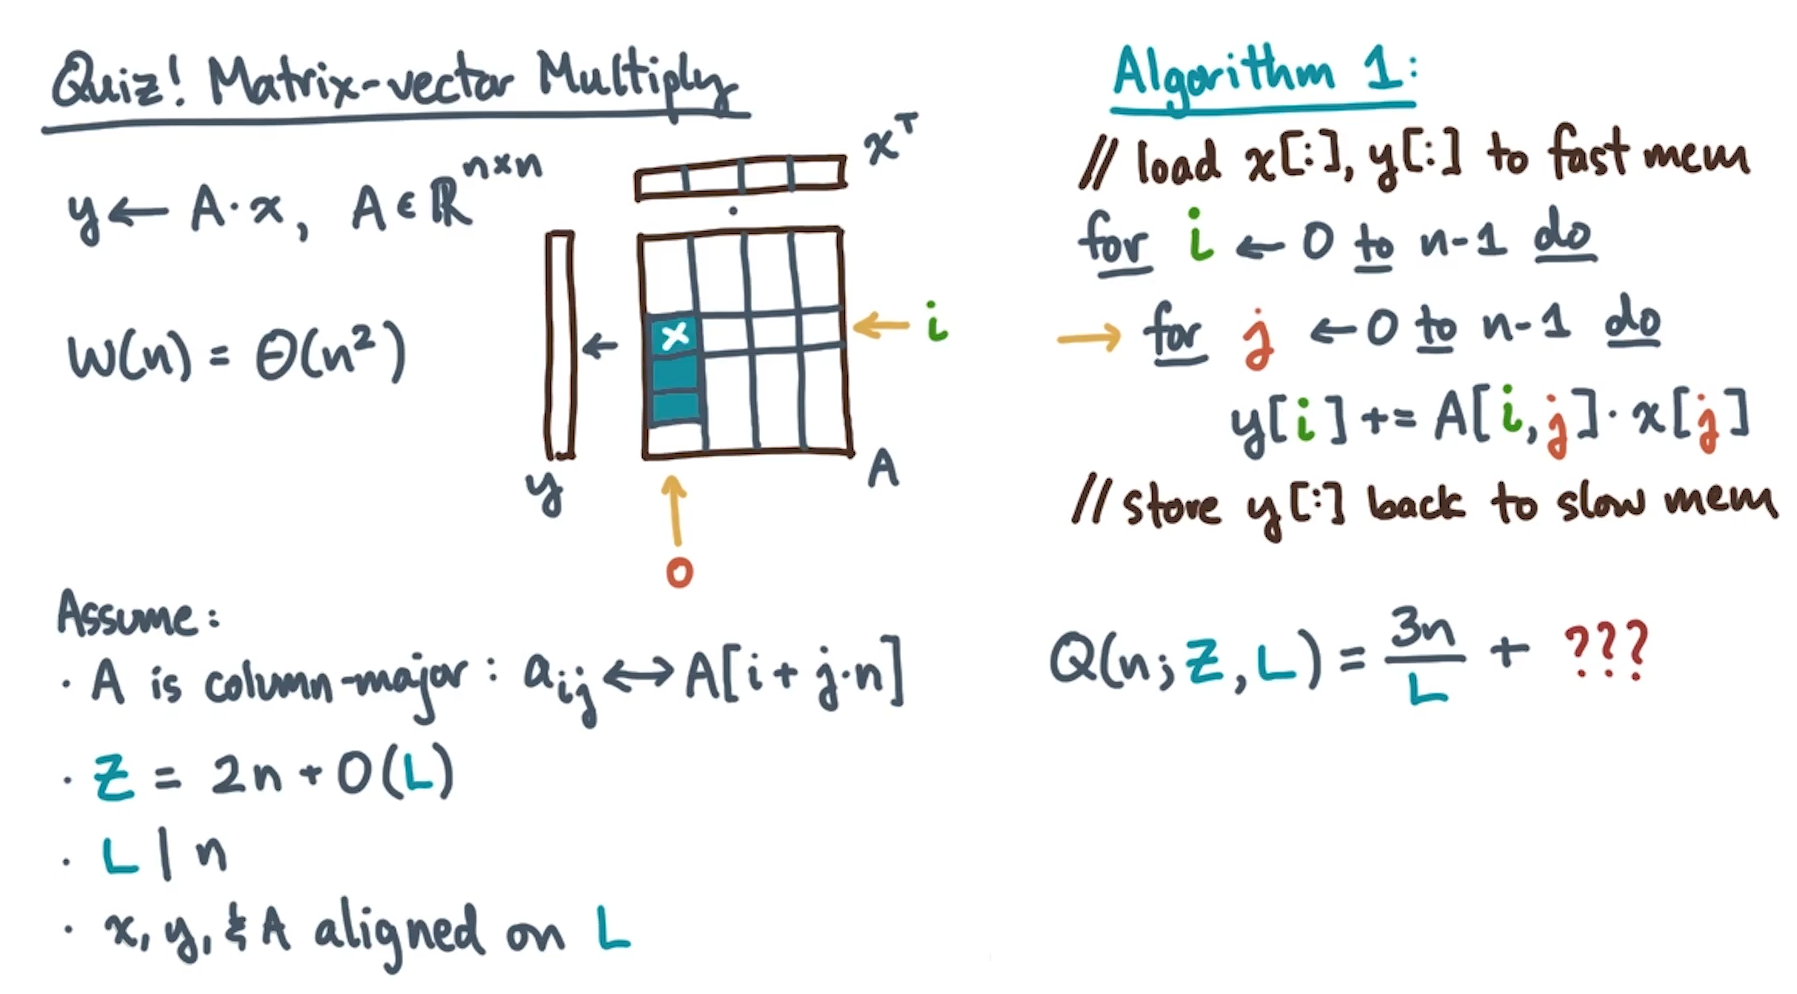 Quiz! Matrix-vector Multiply
y ← A·x, A ∈ ℝⁿˣⁿ
W(n) = Θ(n²)
xᵀ
·
x
← i
←
y
A
0
Assume:
· A is column-major: aᵢⱼ ↔ A[i + j·n]
· Z = 2n + O(L)
· L | n
· x, y, & A aligned on L
Algorithm 1:
// load x[:], y[:] to fast mem
for i ← 0 to n-1 do
→ for j ← 0 to n-1 do
y[i] += A[i,j]·x[j]
// store y[:] back to slow mem
Q(n; Z, L) = 3n/L + ???